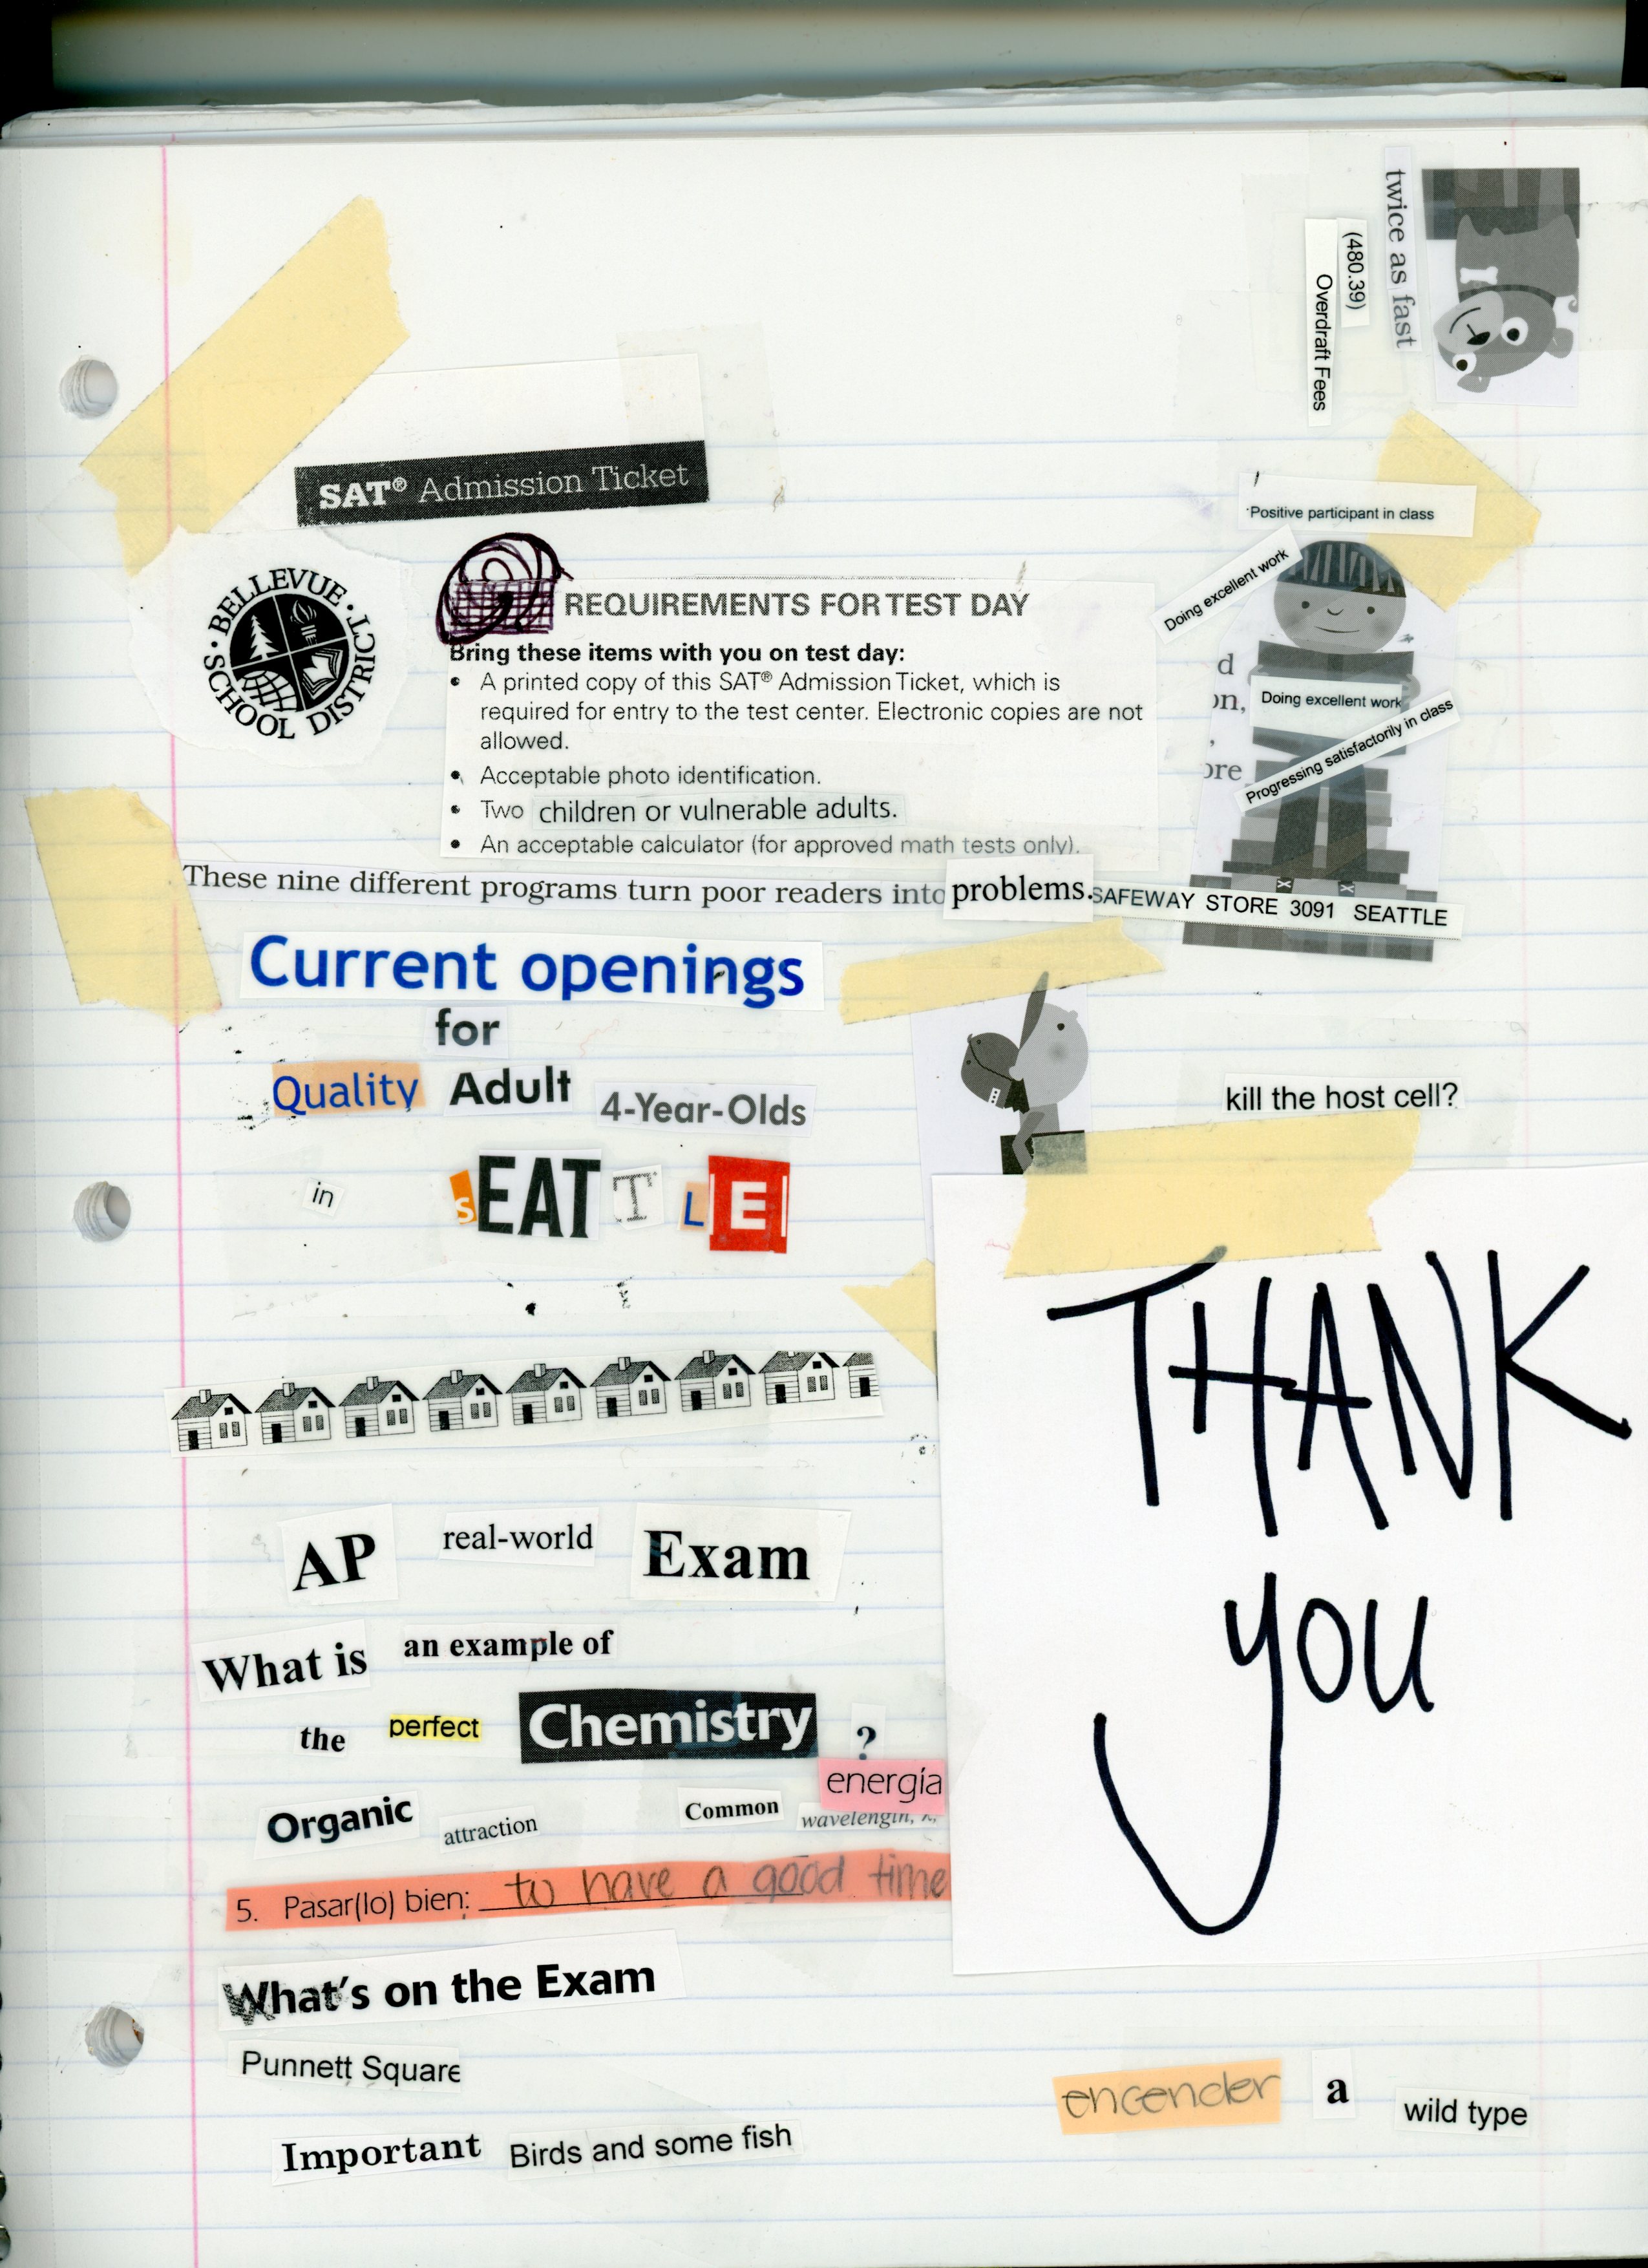 twice as fast
(480.39)
Overdraft Fees
SAT® Admission Ticket
·Positive participant in class
Doing excellent work
BELLEVUE · SCHOOL DISTRICT ·
REQUIREMENTS FOR TEST DAY
Bring these items with you on test day:
• A printed copy of this SAT® Admission Ticket, which is
required for entry to the test center. Electronic copies are not
allowed.
• Acceptable photo identification.
• Two children or vulnerable adults.
• An acceptable calculator (for approved math tests only).
d
on,
,
ore
Doing excellent work
Progressing satisfactorily in class
These nine different programs turn poor readers into problems.
SAFEWAY STORE 3091 SEATTLE
Current openings
for
Quality Adult 4-Year-Olds
in sEATTLE
kill the host cell?
THANK
you
AP real-world Exam
What is an example of
the perfect Chemistry ?
energía
Organic attraction Common wavelength, λ,
5. Pasar(lo) bien: to have a good time
What's on the Exam
Punnett Square
Important Birds and some fish
encender a wild type